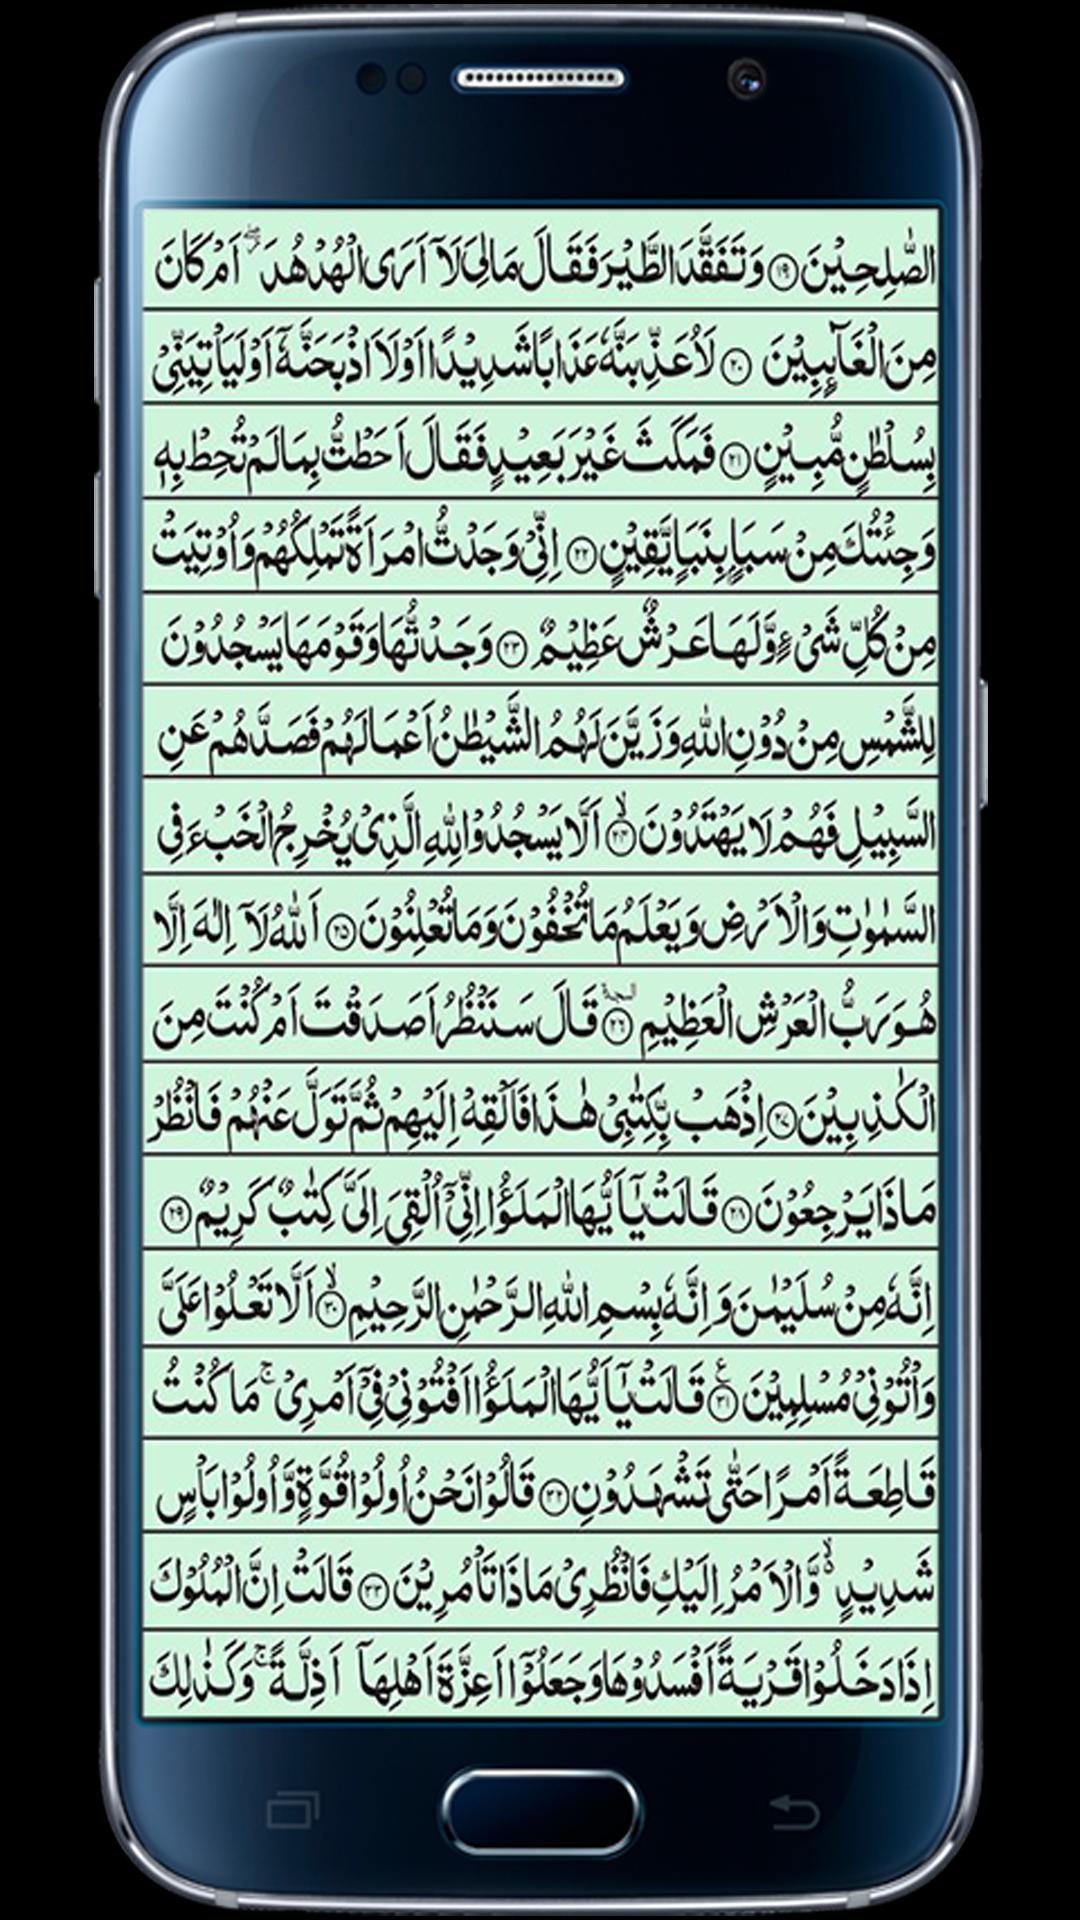 الصّٰلِحِيْنَ ﴿۱۹﴾ وَتَفَقَّدَ الطَّيْرَ فَقَالَ مَالِيَ لَاۤ اَرَى الْهُدْهُدَ ۖ اَمْ كَانَ
مِنَ الْغَآئِبِيْنَ ﴿۲۰﴾ لَاُعَذِّبَنَّهٗ عَذَابًا شَدِيْدًا اَوْ لَاَاذْبَحَنَّهٗۤ اَوْ لَيَاْتِيَنِّيْ
بِسُلْطٰنٍ مُّبِيْنٍ ﴿۲۱﴾ فَمَكَثَ غَيْرَ بَعِيْدٍ فَقَالَ اَحَطْتُّ بِمَا لَمْ تُحِطْ بِهٖ
وَجِئْتُكَ مِنْ سَبَاٍ بِنَبَاٍ يَّقِيْنٍ ﴿۲۲﴾ اِنِّيْ وَجَدْتُّ امْرَاَةً تَمْلِكُهُمْ وَاُوْتِيَتْ
مِنْ كُلِّ شَيْءٍ وَّلَهَا عَرْشٌ عَظِيْمٌ ﴿۲۳﴾ وَجَدْتُّهَا وَقَوْمَهَا يَسْجُدُوْنَ
لِلشَّمْسِ مِنْ دُوْنِ اللّٰهِ وَزَيَّنَ لَهُمُ الشَّيْطٰنُ اَعْمَالَهُمْ فَصَدَّهُمْ عَنِ
السَّبِيْلِ فَهُمْ لَا يَهْتَدُوْنَ ۙ﴿۲۴﴾ اَلَّا يَسْجُدُوْا لِلّٰهِ الَّذِيْ يُخْرِجُ الْخَبْءَ فِي
السَّمٰوٰتِ وَالْاَرْضِ وَيَعْلَمُ مَا تُخْفُوْنَ وَمَا تُعْلِنُوْنَ ﴿۲۵﴾ اَللّٰهُ لَاۤ اِلٰهَ اِلَّا
هُوَ رَبُّ الْعَرْشِ الْعَظِيْمِ ﴿۲۶﴾ السجدة قَالَ سَنَنْظُرُ اَصَدَقْتَ اَمْ كُنْتَ مِنَ
الْكٰذِبِيْنَ ﴿۲۷﴾ اِذْهَبْ بِّكِتٰبِيْ هٰذَا فَاَلْقِهْ اِلَيْهِمْ ثُمَّ تَوَلَّ عَنْهُمْ فَانْظُرْ
مَاذَا يَرْجِعُوْنَ ﴿۲۸﴾ قَالَتْ يٰۤاَيُّهَا الْمَلَؤُا اِنِّيْۤ اُلْقِيَ اِلَيَّ كِتٰبٌ كَرِيْمٌ ﴿۲۹﴾
اِنَّهٗ مِنْ سُلَيْمٰنَ وَاِنَّهٗ بِسْمِ اللّٰهِ الرَّحْمٰنِ الرَّحِيْمِ ۙ﴿۳۰﴾ اَلَّا تَعْلُوْا عَلَيَّ
وَاْتُوْنِيْ مُسْلِمِيْنَ ﴿۳۱﴾ ع قَالَتْ يٰۤاَيُّهَا الْمَلَؤُا اَفْتُوْنِيْ فِيْۤ اَمْرِيْ ۚ مَا كُنْتُ
قَاطِعَةً اَمْرًا حَتّٰى تَشْهَدُوْنِ ﴿۳۲﴾ قَالُوْا نَحْنُ اُولُوْا قُوَّةٍ وَّاُولُوْا بَاْسٍ
شَدِيْدٍ ۙ۬ وَّالْاَمْرُ اِلَيْكِ فَانْظُرِيْ مَاذَا تَاْمُرِيْنَ ﴿۳۳﴾ قَالَتْ اِنَّ الْمُلُوْكَ
اِذَا دَخَلُوْا قَرْيَةً اَفْسَدُوْهَا وَجَعَلُوْۤا اَعِزَّةَ اَهْلِهَاۤ اَذِلَّةً ۚ وَكَذٰلِكَ